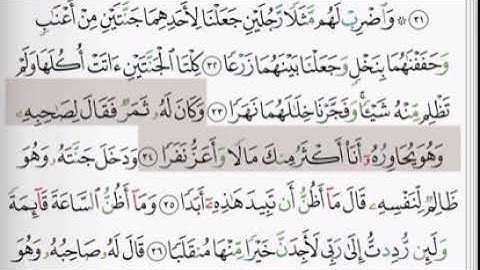 ٣١ ۞ وَٱضْرِبْ لَهُم مَّثَلًا رَّجُلَيْنِ جَعَلْنَا لِأَحَدِهِمَا جَنَّتَيْنِ مِنْ أَعْنَٰبٍ
وَحَفَفْنَٰهُمَا بِنَخْلٍ وَجَعَلْنَا بَيْنَهُمَا زَرْعًا ٣٢ كِلْتَا ٱلْجَنَّتَيْنِ ءَاتَتْ أُكُلَهَا وَلَمْ
تَظْلِم مِّنْهُ شَيْـًٔا وَفَجَّرْنَا خِلَٰلَهُمَا نَهَرًا ٣٣ وَكَانَ لَهُۥ ثَمَرٌ فَقَالَ لِصَٰحِبِهِۦ
وَهُوَ يُحَاوِرُهُۥٓ أَنَا۠ أَكْثَرُ مِنكَ مَالًا وَأَعَزُّ نَفَرًا ٣٤ وَدَخَلَ جَنَّتَهُۥ وَهُوَ
ظَالِمٌ لِّنَفْسِهِۦ قَالَ مَآ أَظُنُّ أَن تَبِيدَ هَٰذِهِۦٓ أَبَدًا ٣٥ وَمَآ أَظُنُّ ٱلسَّاعَةَ قَآئِمَةً
وَلَئِن رُّدِدتُّ إِلَىٰ رَبِّى لَأَجِدَنَّ خَيْرًا مِّنْهَا مُنقَلَبًا ٣٦ قَالَ لَهُۥ صَاحِبُهُۥ وَهُوَ